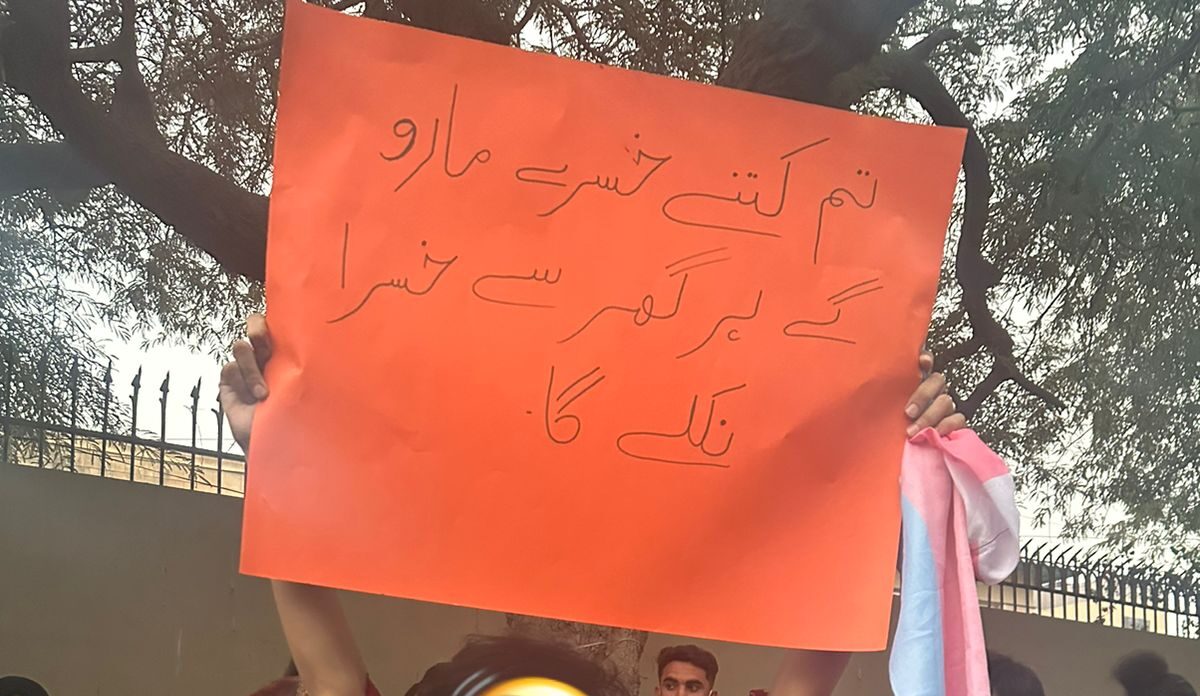 تم کتنے خسرے مارو
گے ہر گھر سے خسرا
نکلے گا